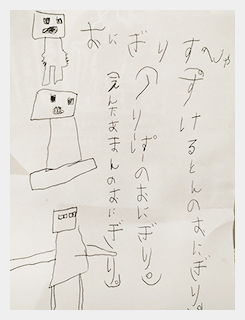 おにぎり
すけるとんのおにぎり。
くりぱーのおにぎり。)
(えんだあまんのおにぎり。)